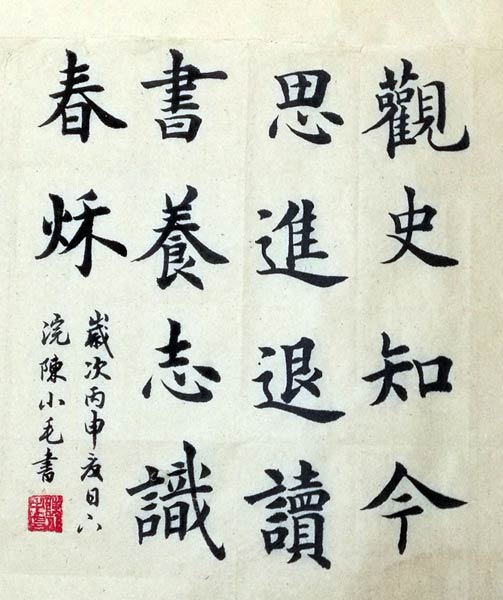 觀史知今
思進退讀
書養志識
春秌
歲次丙申夏日六
浣陳小毛書